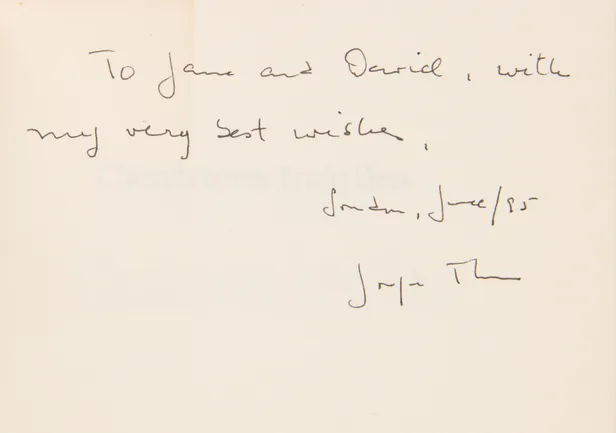 To Jane and David, with
my very best wishes,
London, June/95